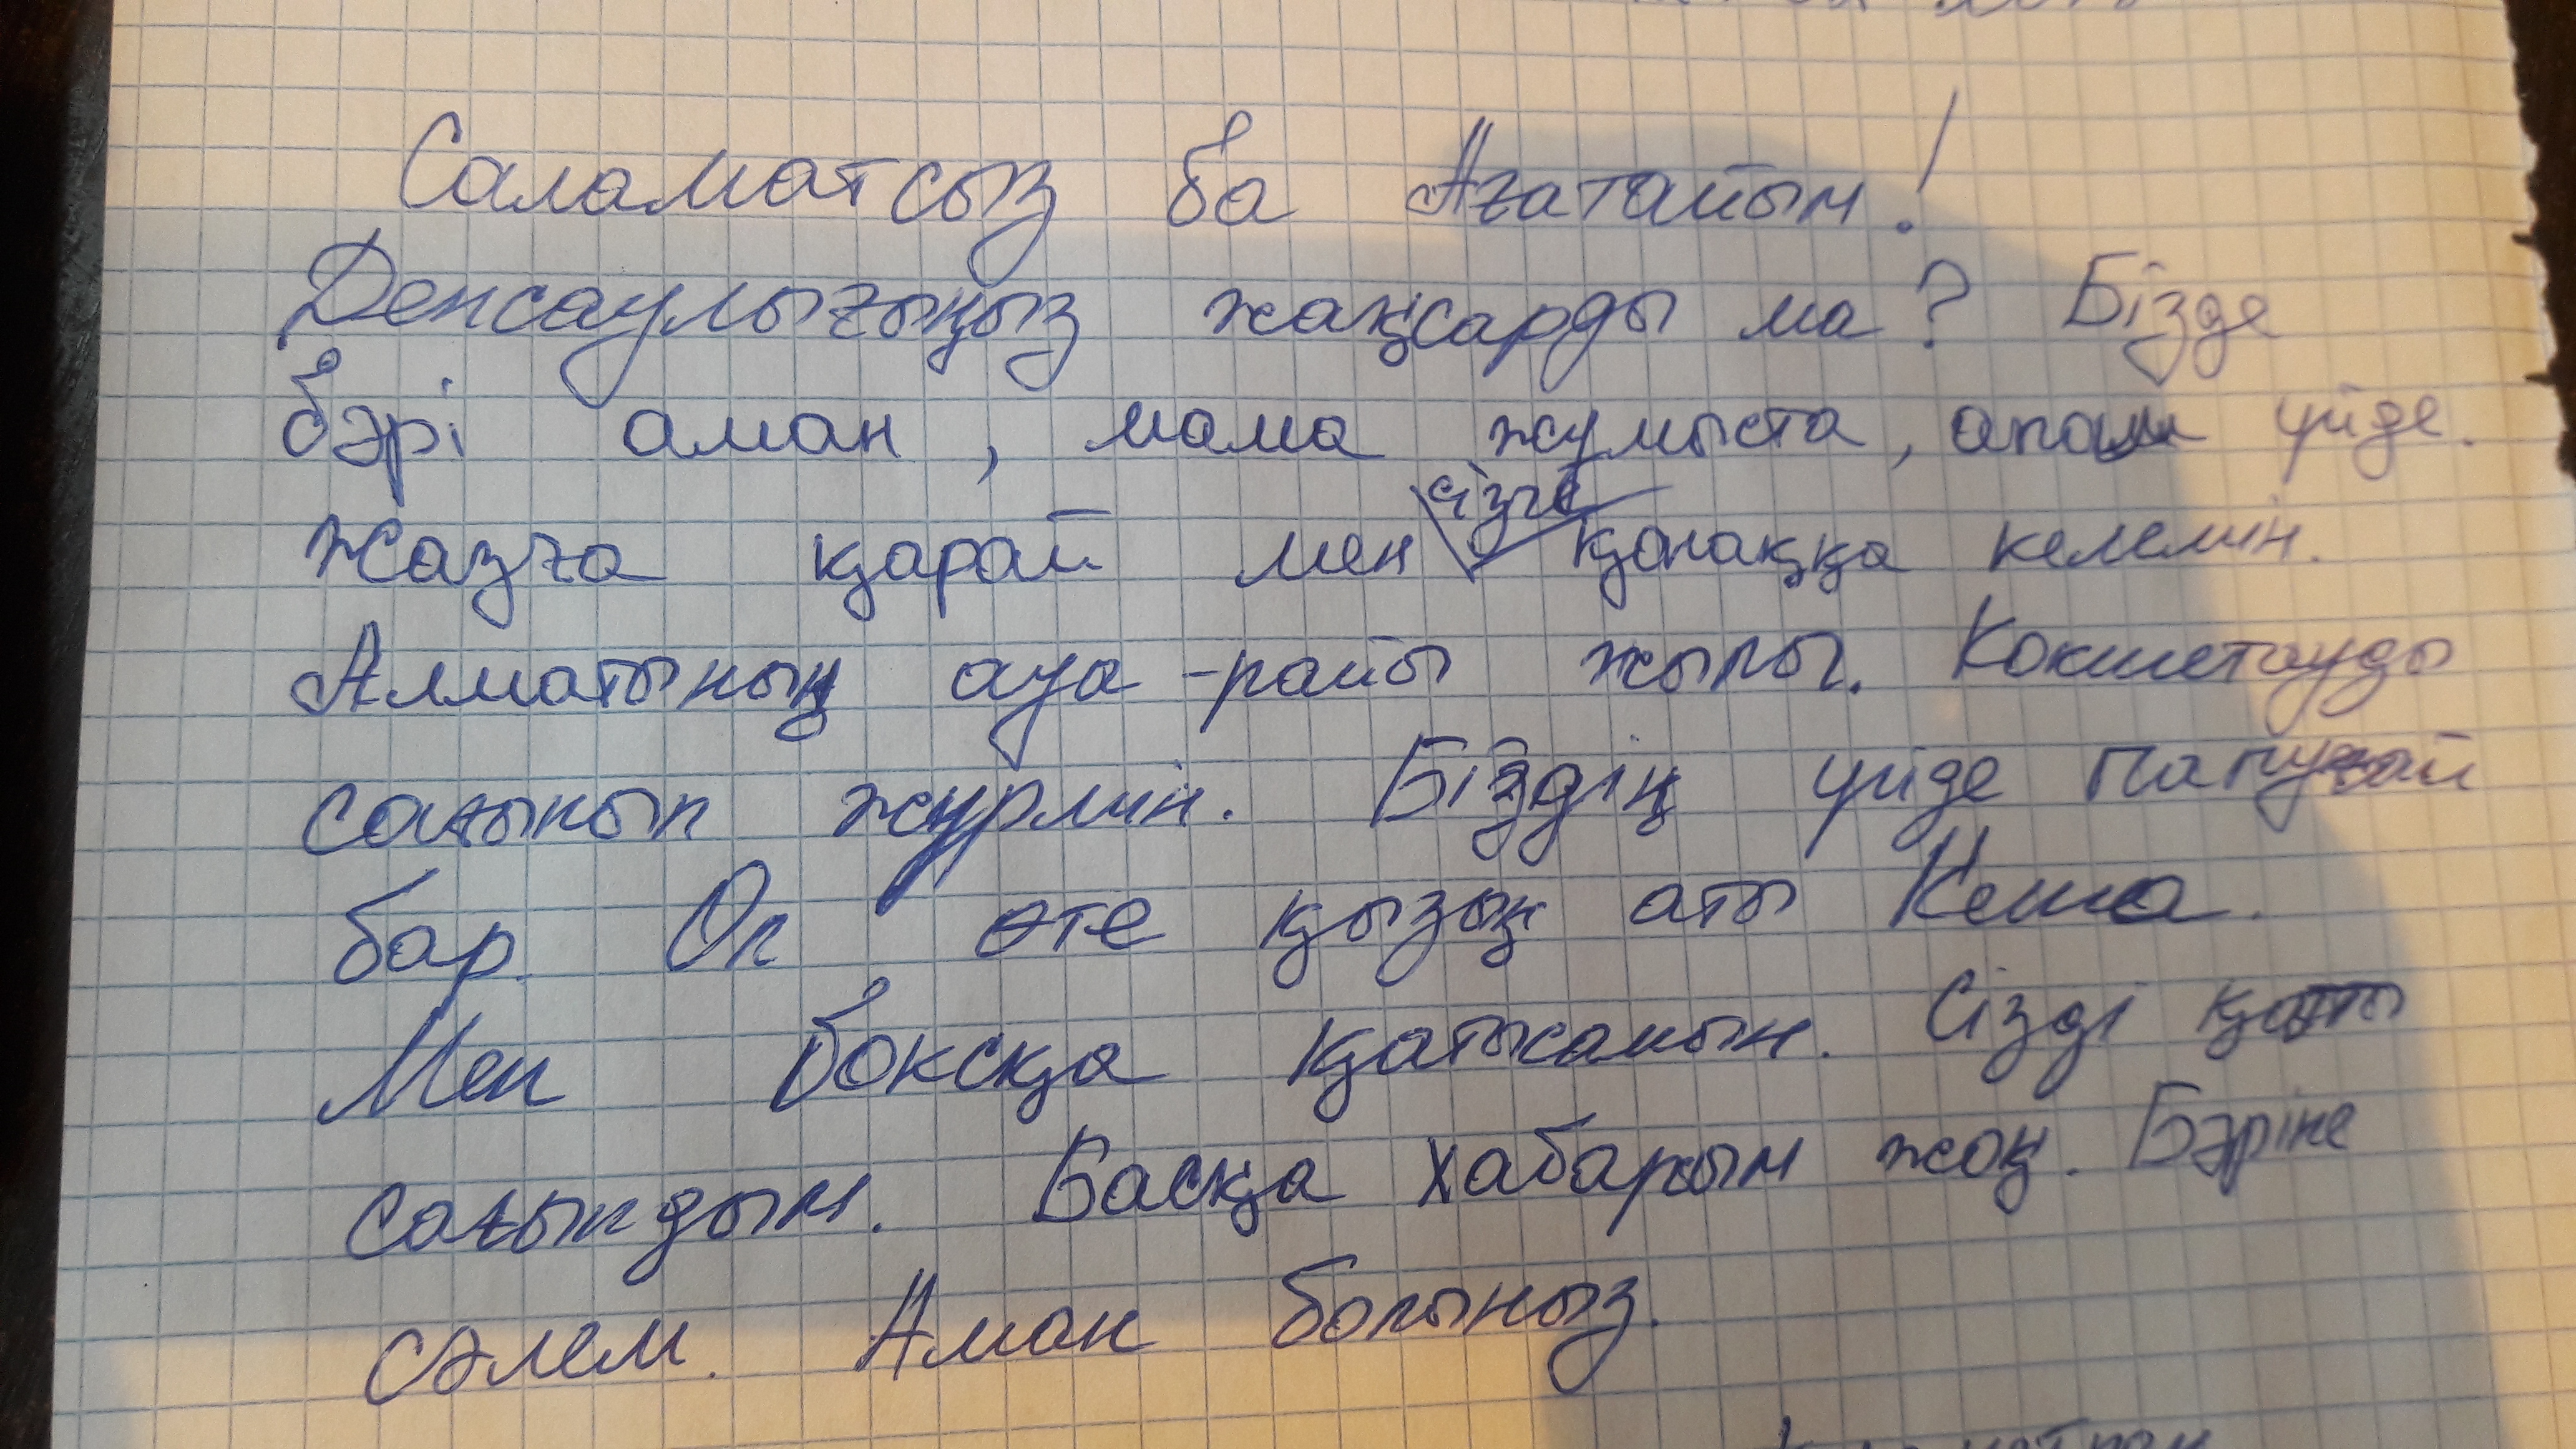 Саламатсыз ба Ағатайым!
Денсаулығыңыз жақсарды ма? Бізде
бәрі аман, мама жұмыста, апам үйде.
Жазға қарай мен сізге қонаққа келемін.
Алматының ауа-райы жылы. Кокшетауды
сағынып жүрмін. Біздің үйде попугай
бар. Ол өте қызық аты Кеша.
Мен боксқа қатысамын. Сізді қатты
сағындым. Басқа хабарым жоқ. Бәріне
сәлем. Аман болыныз.